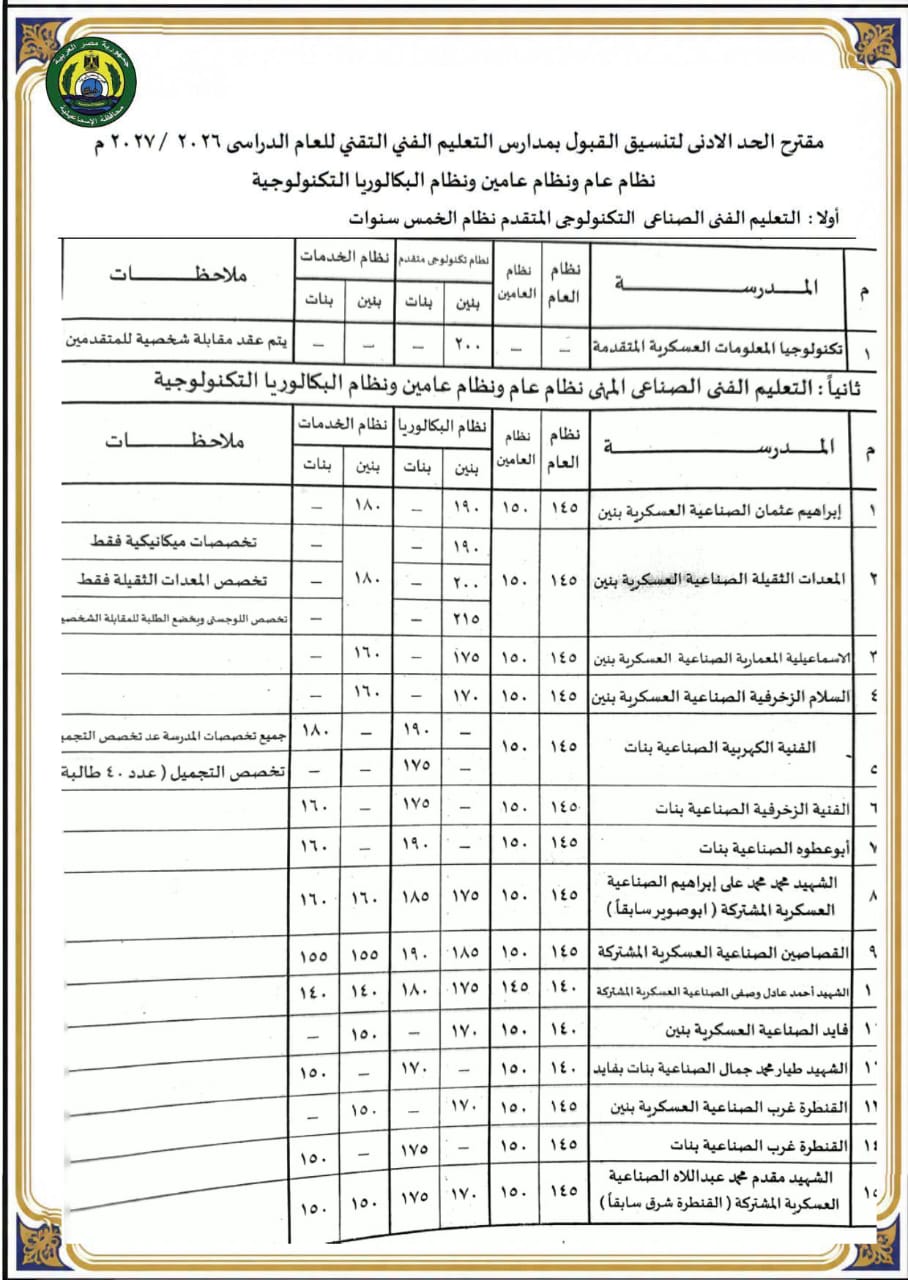 جمهورية مصر العربية
محافظة الإسماعيلية
مقترح الحد الادنى لتنسيق القبول بمدارس التعليم الفني التقني للعام الدراسى ٢٠٢٦ / ٢٠٢٧ م
نظام عام ونظام عامين ونظام البكالوريا التكنولوجية
أولا : التعليم الفنى الصناعى التكنولوجى المتقدم نظام الخمس سنوات
م المدرسة نظام العام نظام العامين نظام تكنولوجى متقدم نظام الخدمات ملاحظات
بنين بنات بنين بنات
١ تكنولوجيا المعلومات العسكرية المتقدمة – – ٢٠٠ – – – يتم عقد مقابلة شخصية للمتقدمين
ثانياً : التعليم الفنى الصناعى المهنى نظام عام ونظام عامين ونظام البكالوريا التكنولوجية
م المدرسة نظام العام نظام العامين نظام البكالوريا نظام الخدمات ملاحظات
بنين بنات بنين بنات
١ إبراهيم عثمان الصناعية العسكرية بنين ١٤٥ ١٥٠ ١٩٠ – ١٨٠ –
٢ المعدات الثقيلة الصناعية العسكرية بنين ١٤٥ ١٥٠ ١٩٠ – ١٨٠ – تخصصات ميكانيكية فقط
٢٠٠ – – تخصص المعدات الثقيلة فقط
٢١٥ – – تخصص اللوجستى ويخضع الطلبة للمقابلة الشخصي
٣ الاسماعيلية المعمارية الصناعية العسكرية بنين ١٤٥ ١٥٠ ١٧٥ – ١٦٠ –
٤ السلام الزخرفية الصناعية العسكرية بنين ١٤٥ ١٥٠ ١٧٠ – ١٦٠ –
٥ الفنية الكهربية الصناعية بنات ١٤٥ ١٥٠ – ١٩٠ – ١٨٠ جميع تخصصات المدرسة عد تخصص التجمي
– ١٧٥ – – تخصص التجميل ( عدد ٤٠ طالبة
٦ الفنية الزخرفية الصناعية بنات ١٤٥ ١٥٠ – ١٧٥ – ١٦٠
٧ أبوعطوه الصناعية بنات ١٤٥ ١٥٠ – ١٩٠ – ١٦٠
٨ الشهيد محمد محمد على إبراهيم الصناعية
العسكرية المشتركة ( ابوصوير سابقاً ) ١٤٥ ١٥٠ ١٧٥ ١٨٥ ١٦٠ ١٦٠
٩ القصاصين الصناعية العسكرية المشتركة ١٤٥ ١٥٠ ١٨٥ ١٩٠ ١٥٥ ١٥٥
١ الشهيد أحمد عادل وصفى الصناعية العسكرية المشتركة ١٤٠ ١٤٥ ١٧٥ ١٨٠ ١٤٠ ١٤٠
١ فايد الصناعية العسكرية بنين ١٤٠ ١٥٠ ١٧٠ – ١٥٠ –
١ الشهيد طيار محمد جمال الصناعية بنات بفايد ١٤٠ ١٥٠ – ١٧٠ – ١٥٠
١٣ القنطرة غرب الصناعية العسكرية بنين ١٤٥ ١٥٠ ١٧٠ – ١٥٠ –
١٤ القنطرة غرب الصناعية بنات ١٤٥ ١٥٠ – ١٧٥ – ١٥٠
١٥ الشهيد مقدم محمد عبداللاه الصناعية
العسكرية المشتركة ( القنطرة شرق سابقاً ) ١٤٥ ١٥٠ ١٧٠ ١٧٥ ١٥٠ ١٥٠